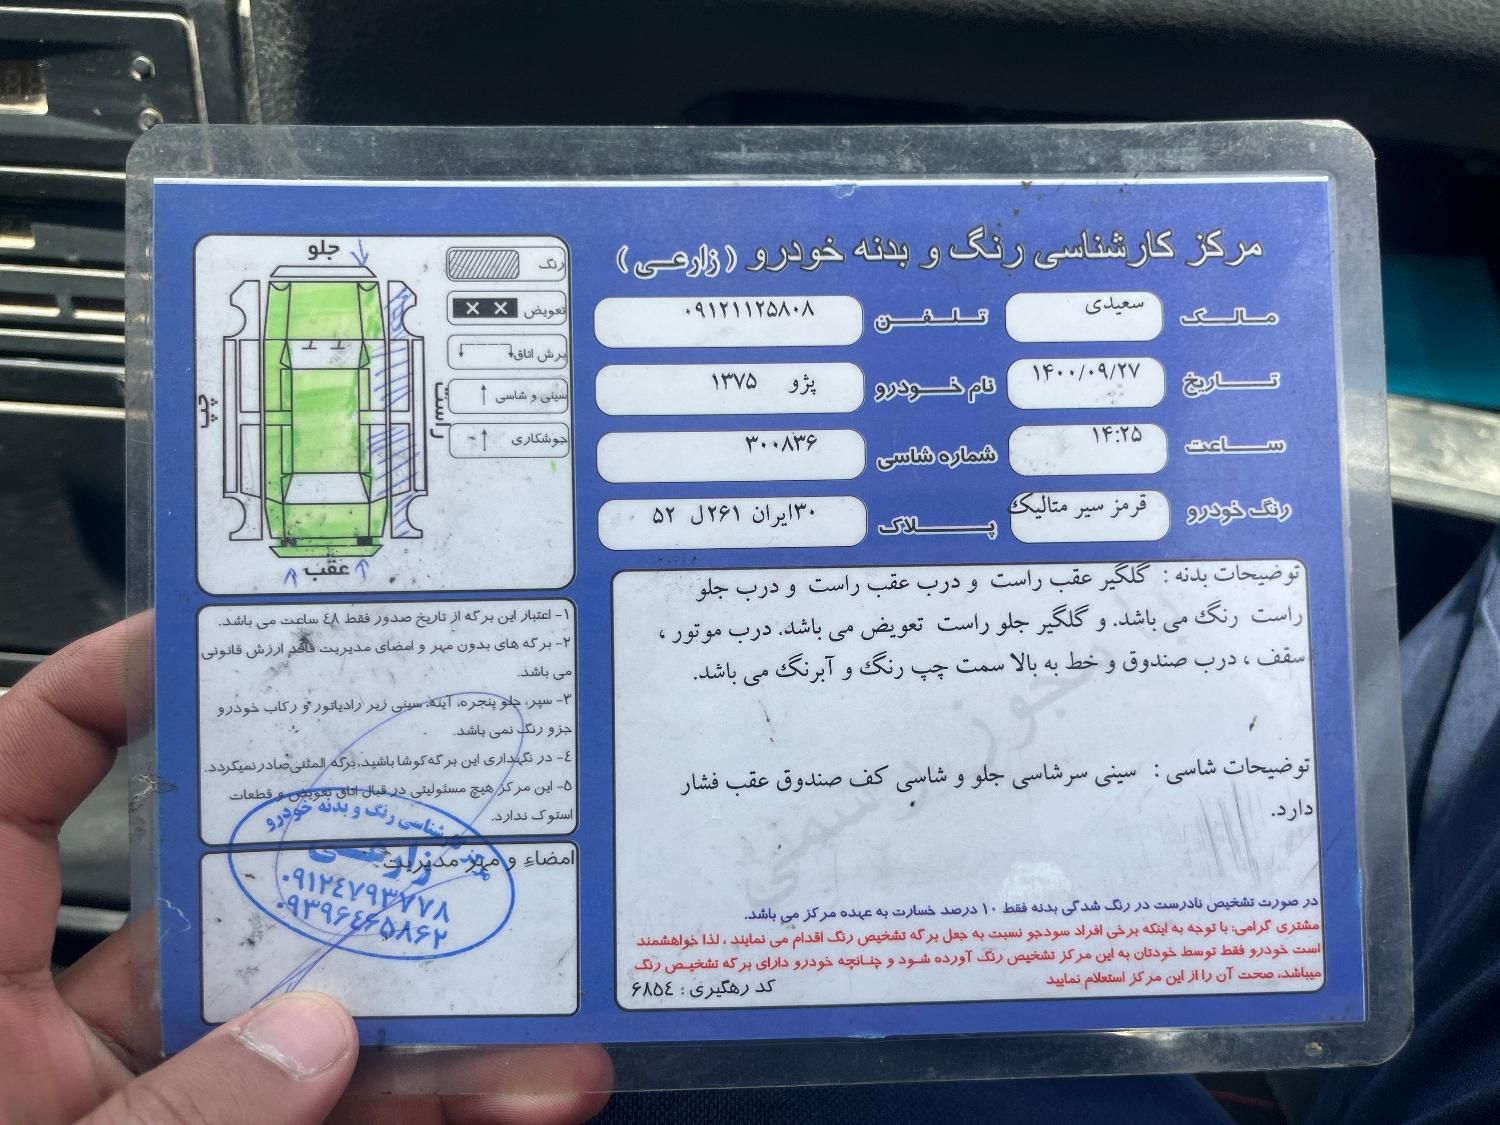 مرکز کارشناسی رنگ و بدنه خودرو ( زارعی )
مالک سعیدی تلفن ۰۹۱۲۱۱۲۵۸۰۸
تاریخ ۱۴۰۰/۰۹/۲۷ نام خودرو پژو ۱۳۷۵
ساعت ۱۴:۲۵ شماره شاسی ۳۰۰۸۳۶
رنگ خودرو قرمز سیر متالیک پلاک ۳۰ایران ۲۶۱ل ۵۲
جلو
رنگ
تعویض
برش اتاق
سینی و شاسی
جوشکاری
راست
چپ
عقب
توضیحات بدنه : گلگیر عقب راست و درب عقب راست و درب جلو
راست رنگ می باشد. و گلگیر جلو راست تعویض می باشد. درب موتور ،
سقف ، درب صندوق و خط به بالا سمت چپ رنگ و آبرنگ می باشد.
توضیحات شاسی : سینی سرشاسی جلو و شاسی کف صندوق عقب فشار
دارد.
در صورت تشخیص نادرست در رنگ شدگی بدنه فقط ۱۰ درصد خسارت به عهده مرکز می باشد.
مشتری گرامی: با توجه به اینکه برخی افراد سودجو نسبت به جعل برگه تشخیص رنگ اقدام می نمایند ، لذا خواهشمند
است خودرو فقط توسط خودتان به این مرکز تشخیص رنگ آورده شود و چنانچه خودرو دارای برگه تشخیص رنگ
میباشد، صحت آن را از این مرکز استعلام نمایید
کد رهگیری : ۶۸۵٤
۱- اعتبار این برگه از تاریخ صدور فقط ٤۸ ساعت می باشد.
۲- برگه های بدون مهر و امضای مدیریت فاقد ارزش قانونی
می باشد.
۳- سپر، جلو پنجره، آینه، سینی زیر رادیاتور و رکاب خودرو
جزو رنگ نمی باشد.
٤- در نگهداری این برگه کوشا باشید، برگه المثنی صادر نمیگردد.
۵- این مرکز هیچ مسئولیتی در قبال اتاق تعویض و قطعات
استوک ندارد.
امضاء و مهر مدیریت
کارشناسی رنگ و بدنه خودرو
زارعی
۰۹۱۲٤۷۹۳۷۷۸
۰۹۳۹۶٤۶۵۸۶۲